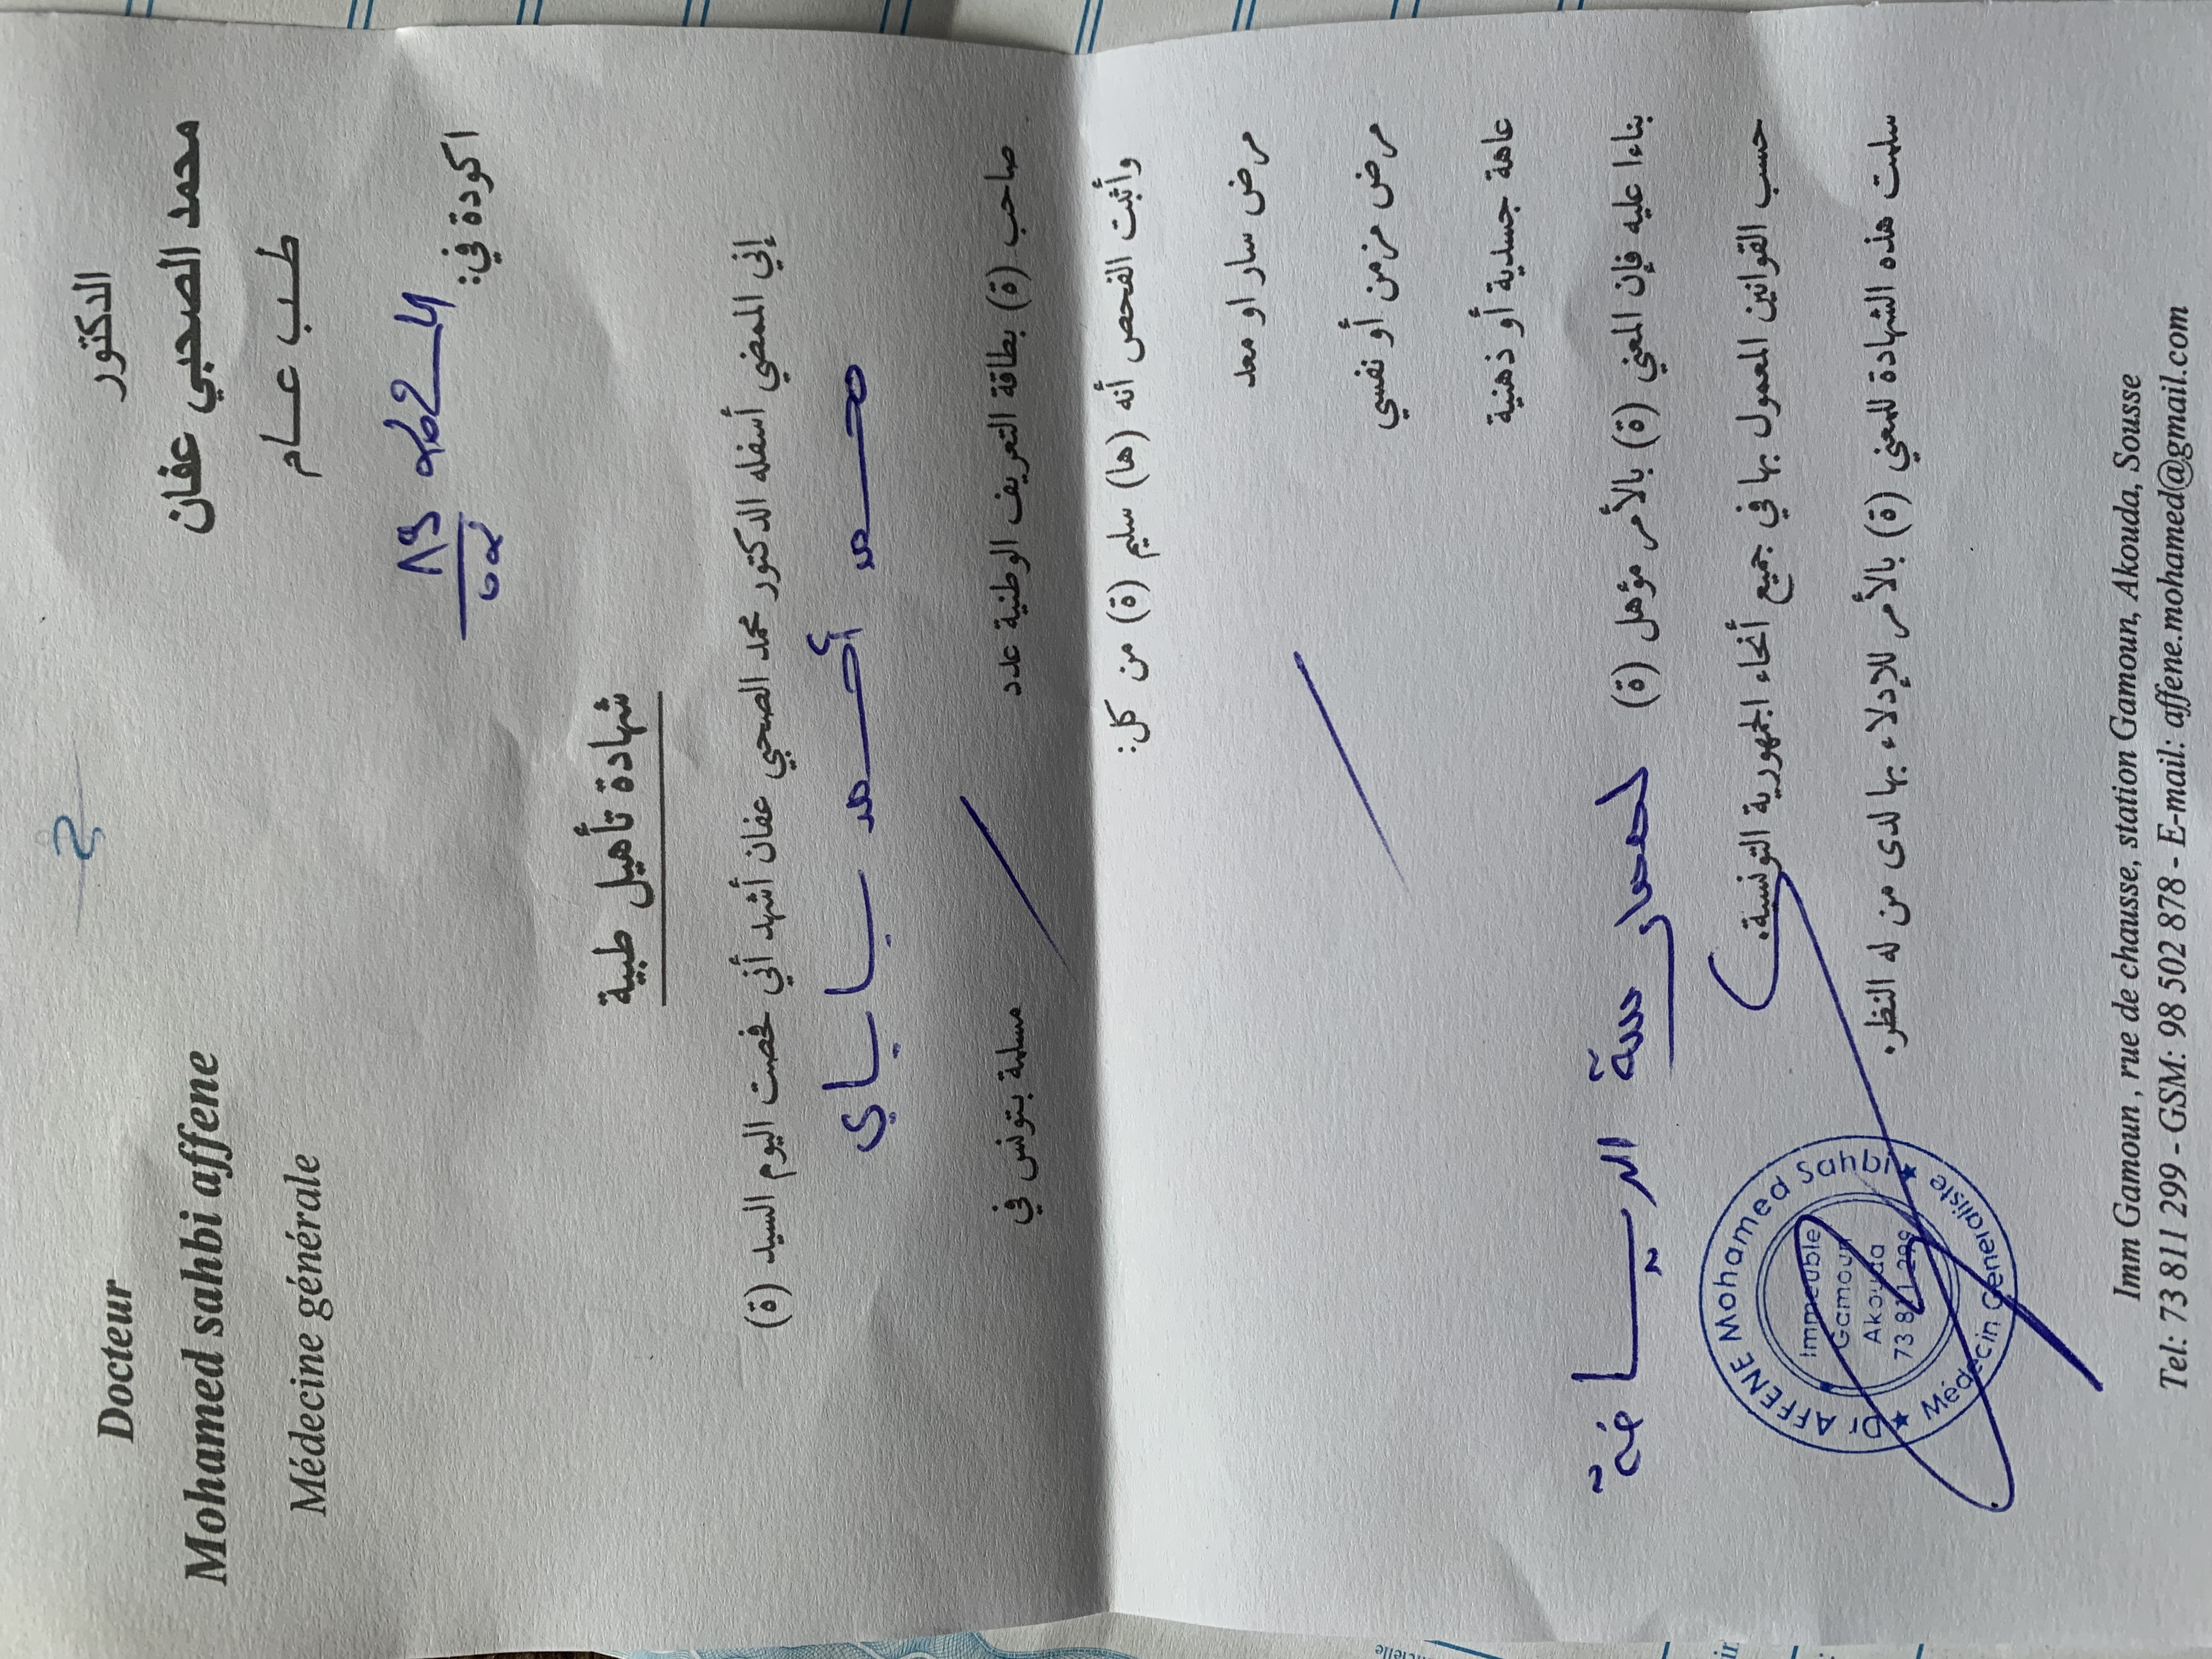 الدكتور
محمد الصحبي عفان
طب عام
Docteur
Mohamed sahbi affene
Médecine générale
اكودة في:
شهادة تأهيل طبية
إني الممضي أسفله الدكتور محمد الصحبي عفان أشهد أني فحصت اليوم السيد (ة)
محمد أحمد يايا
صاحب (ة) بطاقة التعريف الوطنية عدد / مسلمة بتونس في
وأثبت الفحص أنه (ها) سليم (ة) من كل:
مرض سار او معد
مرض مزمن أو نفسي
عاهة جسدية أو ذهنية
بناءا عليه فإن المعني (ة) بالأمر مؤهل (ة) لممارسة الرياضة
حسب القوانين المعمول بها في جميع أنحاء الجمهورية التونسية.
سلمت هذه الشهادة للمعني (ة) بالأمر للإدلاء بها لدى من له النظر.
Dr AFFENE Mohamed Sahbi
Immeuble
Gamoun
Akouda
73 811 299
Médecin Généraliste
Imm Gamoun , rue de chausse, station Gamoun, Akouda, Sousse
Tel: 73 811 299 - GSM: 98 502 878 - E-mail: affene.mohamed@gmail.com